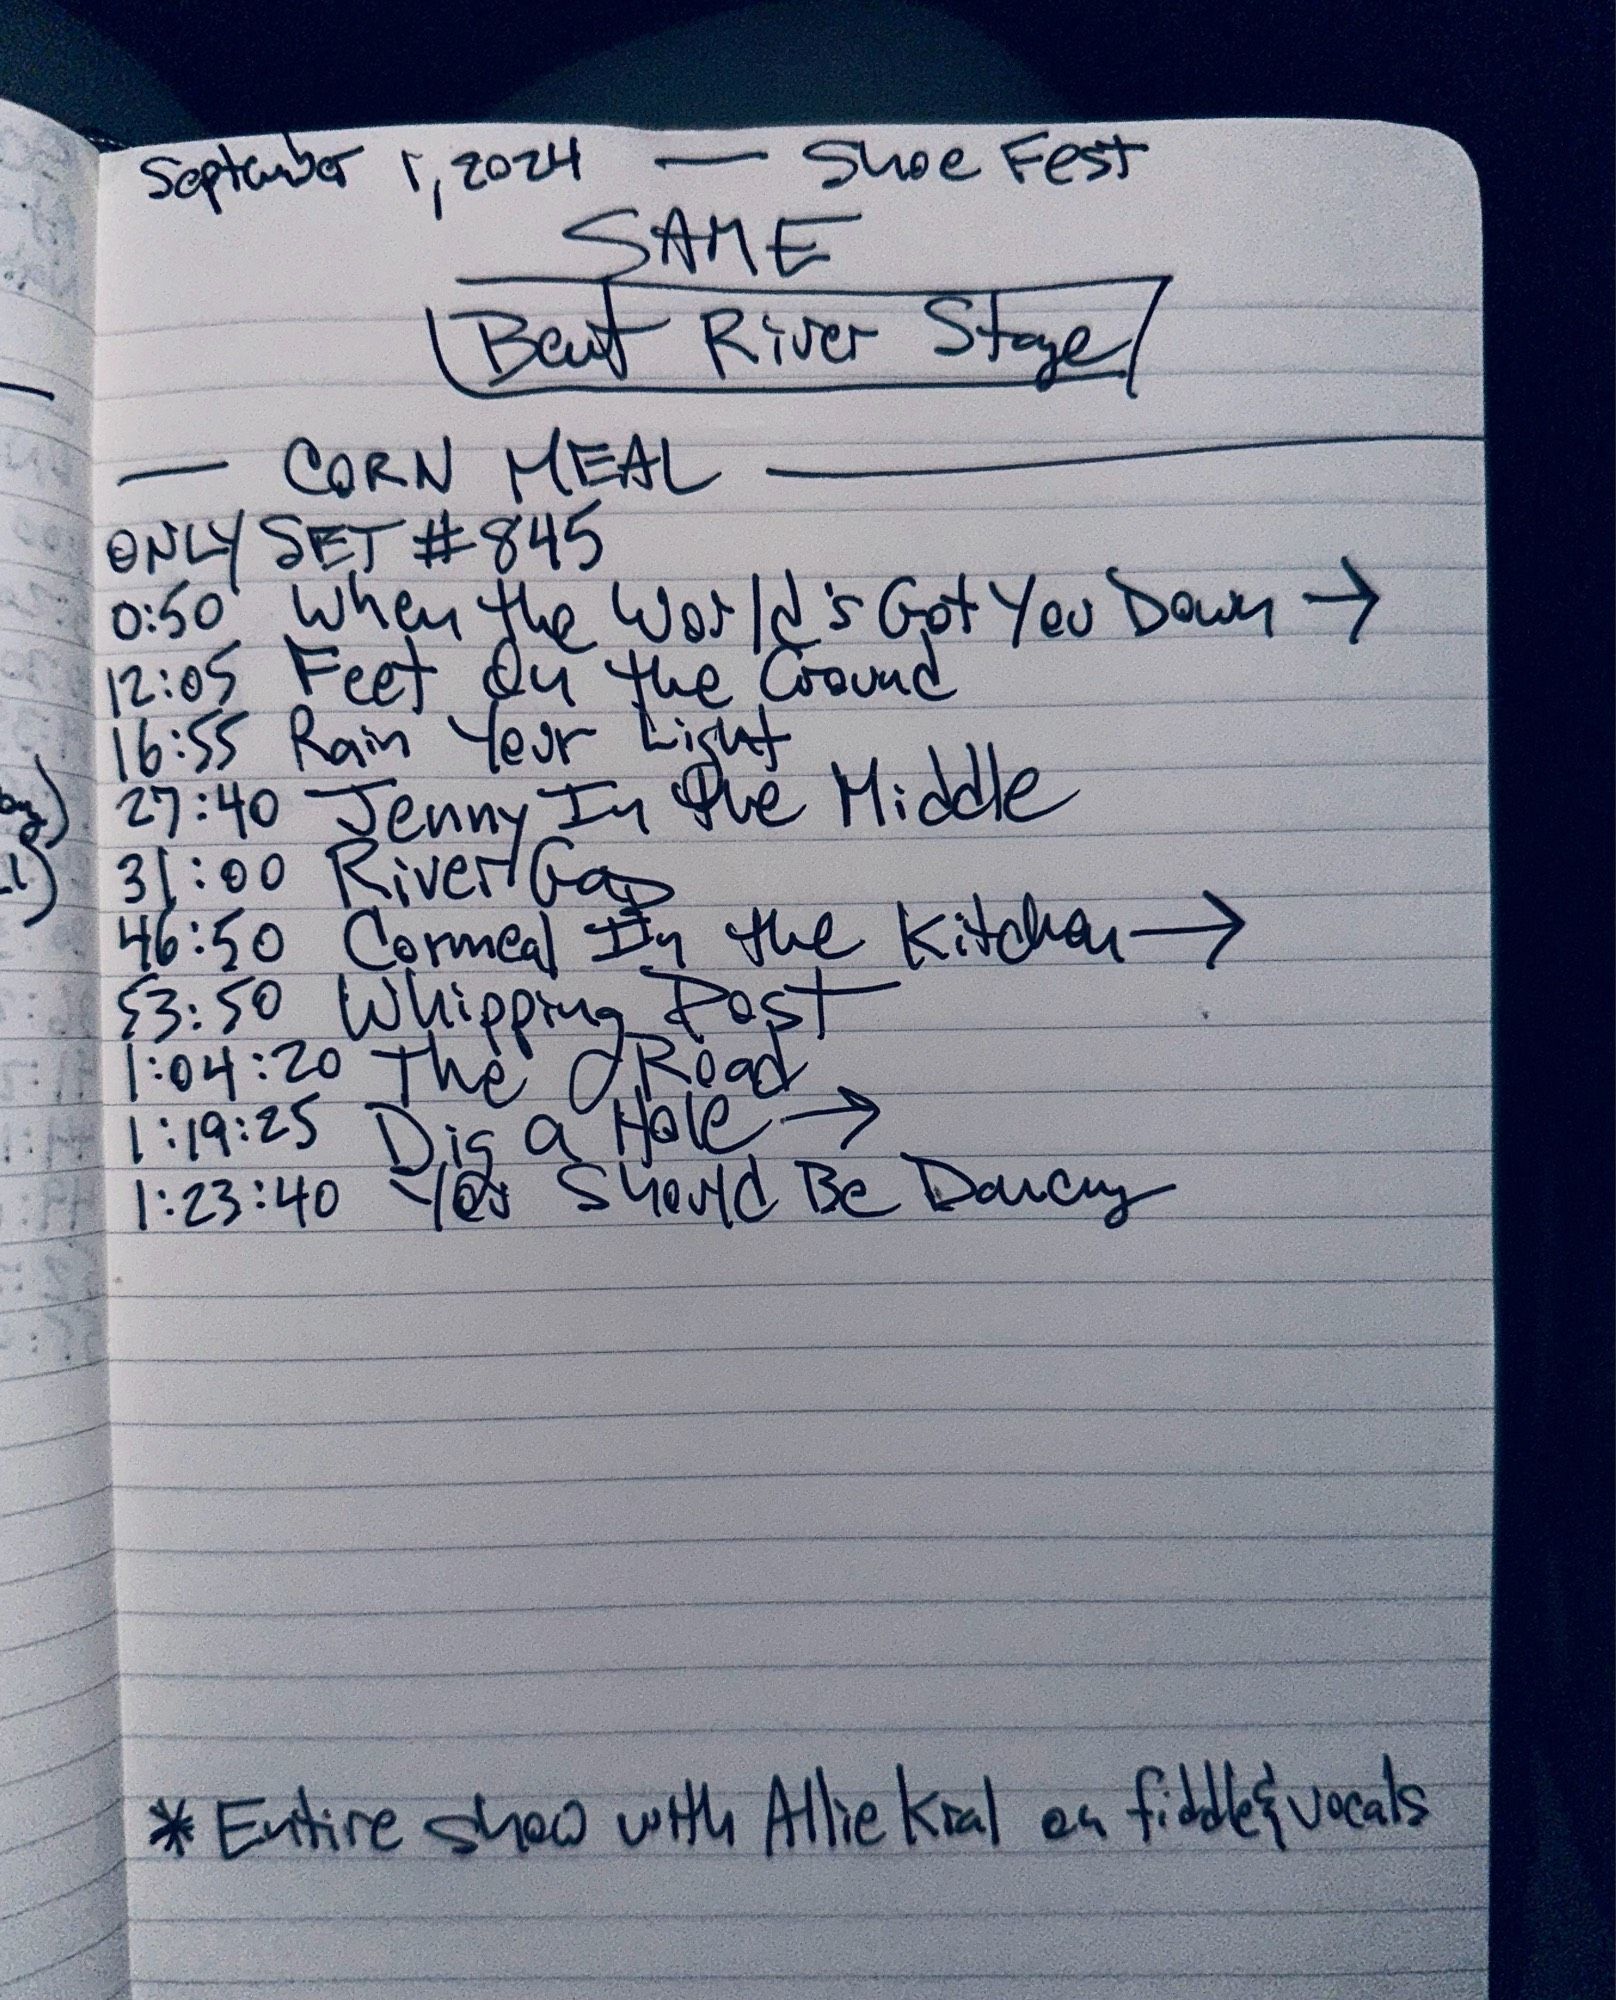 September 1, 2024 — Shoe Fest
SAME
Bent River Stage
— CORN MEAL —
ONLY SET #845
0:50 When the World's Got You Down →
12:05 Feet On the Ground
16:55 Rain Your Light
27:40 Jenny In the Middle
31:00 River Gap
46:50 Cornmeal In the Kitchen →
53:50 Whipping Post
1:04:20 The Road
1:19:25 Dig a Hole →
1:23:40 You Should Be Dancing
* Entire show with Allie Kral on fiddle & vocals